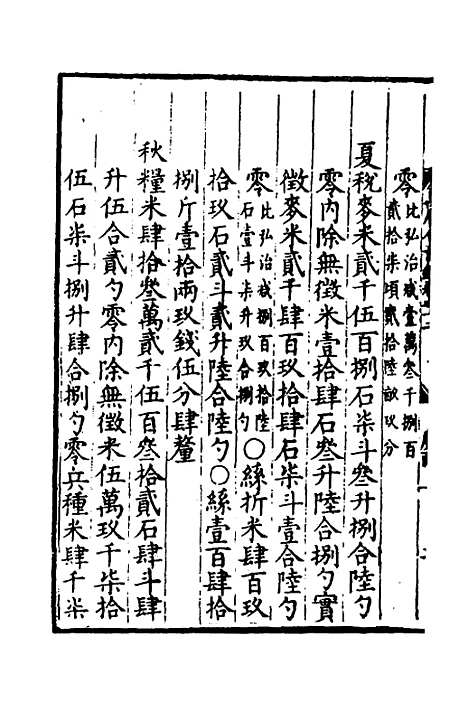 零比弘治減壹萬叁千捌百
貳拾柒頃貳拾陸畝玖分
夏稅麥米貳千伍百捌石柒斗叁升捌合陸勺
零內除無徵米壹拾肆石叁升陸合捌勺實
徵麥米貳千肆百玖拾肆石柒斗壹合陸勺
零比弘治減捌百玖拾陸
石壹斗柒升玖合捌勺○絲折米肆百玖
拾玖石貳斗貳升陸合陸勺○絲壹百肆拾
捌斤壹拾兩玖錢伍分肆釐
秋糧米肆拾叁萬貳千伍百叁拾貳石肆斗肆
升伍合貳勺零內除無徵米伍萬玖千柒拾
伍石柒斗捌升肆合捌勺零兵種米肆千柒